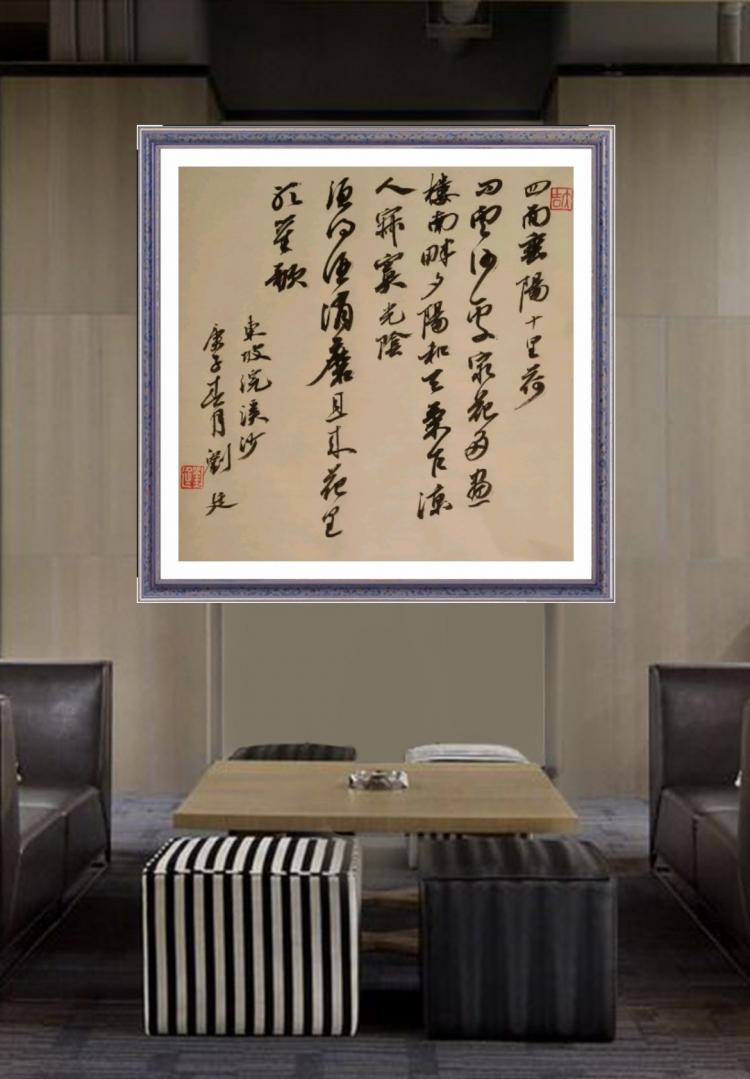 四面襄陽十里荷
问云何處最花多畫
樓南畔夕陽和天氣乍涼
人寂寞光陰
須得酒消磨且來花里
聽笙歌
東坡浣溪沙
庚子春月劉廷